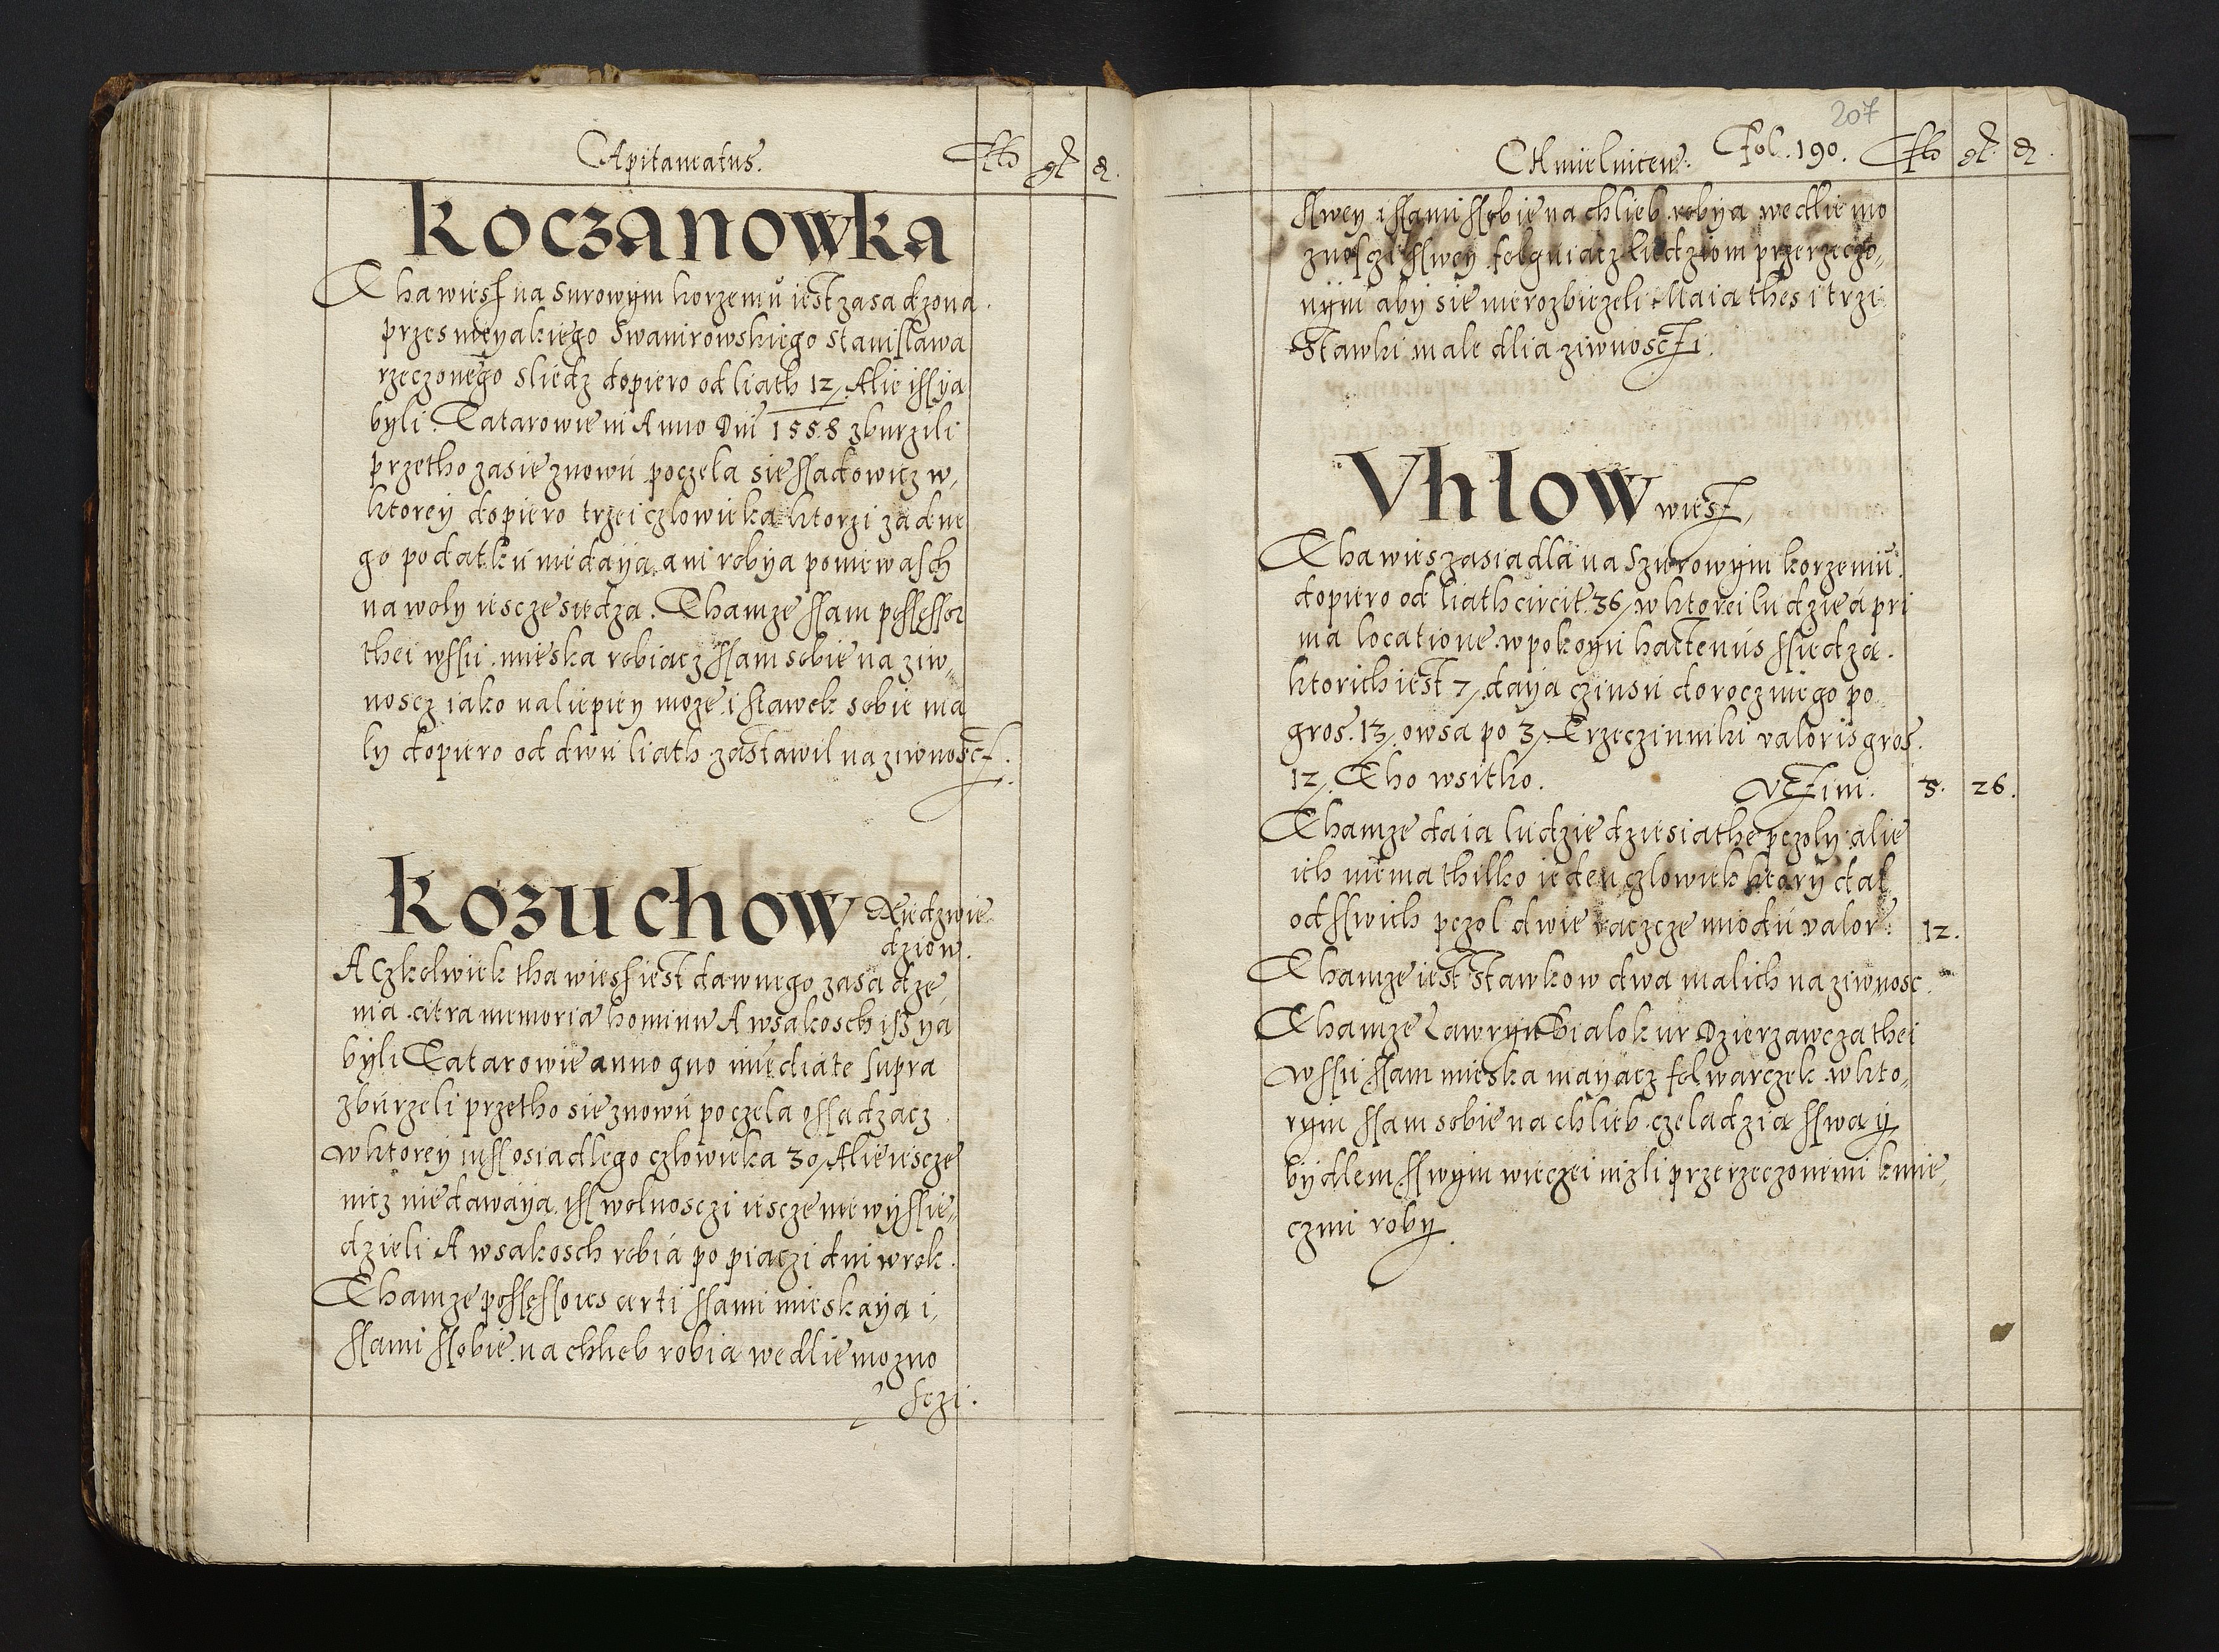 Capitaneatus. fl gr d.
Koczanowka
Tha wiesz na surowym korzemu iest zasadzona.
przes nieyakiego Swanirowskiego Stanisława
rzeczonego Sliedz dopiero od liath 12, Alie iss ya
byli Tatarowie in Anno Dni 1558 zburzili
przetho zasie znowu poczela sie ssadowicz w,
ktorey dopiero trzei czlowieka ktorzi zadne
go podatku niedaya ani robya poniewasch
na woly iescze siedza. Thamze ssam possessor
thei wssii mieska robiacz ssam sobie na ziw,
noscz iako naliepiey moze i stawek sobie ma
ly dopiero od dwu liath zastawil na ziwnoscz.
Kozuchow Niedzwie
dziow.
Aczkolwiek tha wies iest dawnego zasadze,
nia citra memoria hominu A wsakosch iss ya
byli Tatarowie anno quo imediate supra
zburzeli przetho sie znowu poczela ossadzacz
w ktorey iuss osiadlego czlowieka 30, Alie iescze
nicz nie dawaya iss wolnosczi iescze nie wyssie,
dzieli A wsakosch robia po piaczi dni w rok.
Thamze possessores certi ssami mieskaya i,
ssami ssobie na chlieb robia wedlie mozno
sczi.
207
Chmielnicen. Fol. 190. fl gr d.
sswey i ssami ssobie na chlieb robya wedlie mo
znosczi sswey folguiacz liudziom przerzeczo,
nym aby sie nierozbiezeli Maia thes i trzi
stawki male dlia ziwnosczi.
Vhlow wiesz,
Tha wies zasiadla na Szurowym korzeniu.
dopiero od liath circit. 36, w ktorei ludzie a pri
ma locatione w pokoyu hactenus ssiedza.
ktorich iest 7, daya czinsu dorocznego po
gros. 13, owsa po 3, Trzeczinniki valoris gros.
12, Tho wsitko. Vczini. 8. 26.
Thamze daia ludzie dziesiathe pczoly alie
ich niema thilko ieden czlowiek ktory dal
od sswich pczol dwie raczcze miodu valor: 12.
Thamze iest stawkow dwa malich na ziwnosc.
Thamze Lawryn Bialokur Dzierzawcza thei
wssii ssam mieska mayacz folwarczek w kto,
rym ssam sobie na chlieb czeladzia sswa y
bydlem sswym wieczei nizli przerzeczonemi kmie,
czmi roby.